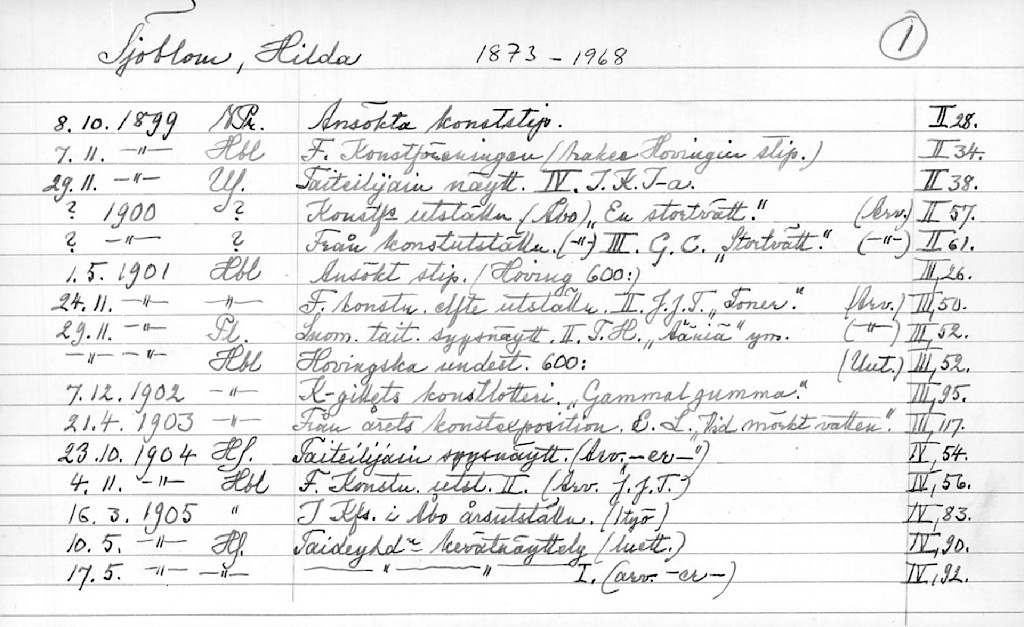 Sjöblom, Hilda 1873-1968 1
8.10.1899 N.Pr. Ansökta konststip. II 28.
7.11. -"- Hbl F. Konstföreningen (hakee Hovingin stip.) II 34.
29.11. -"- Uf. Taiteilijain näytt. IV. J.K. J-a. II 38.
? 1900 ? Konstfs utställn (Åbo) „En stortvätt." (Arv.) II 57.
? -"- ? Från konstutställn. (-"-) III. G.C. „Stortvätt." (-"-) II 61.
1.5.1901 Hbl Ansökt stip. (Hoving 600:) III, 26.
24.11. -"- -"- F. konstn. elfte utställn. II. J.J.T. „Toner." (Arv.) III, 50.
29.11. -"- Pl. Suom. tait. syysnäytt. II. T.H. „Ääniä" ym. (-"-) III, 52.
-"- -"- Hbl Hovingska underst. 600: (Uut.) III, 52.
7.12.1902 -"- K-gillets konstlotteri. „Gammal gumma." III, 95.
21.4.1903 -"- Från årets konstexposition. E.L. „Vid mörkt vatten." III, 117.
23.10.1904 Hf. Taiteilijain syysnäytt. (Arv. -er-") IV, 54.
4.11. -"- Hbl F. Konstn. utst. II. (Arv. J.J.T.) IV, 56.
16.3.1905 " I Kfs. i Åbo årsutställn. (1 työ) IV, 83.
10.5. -"- Hf. Taideyhdn kevätnäyttely (luett.) IV, 90.
17.5. -"- -"- -"- " I. (arv. -er-) IV, 92.